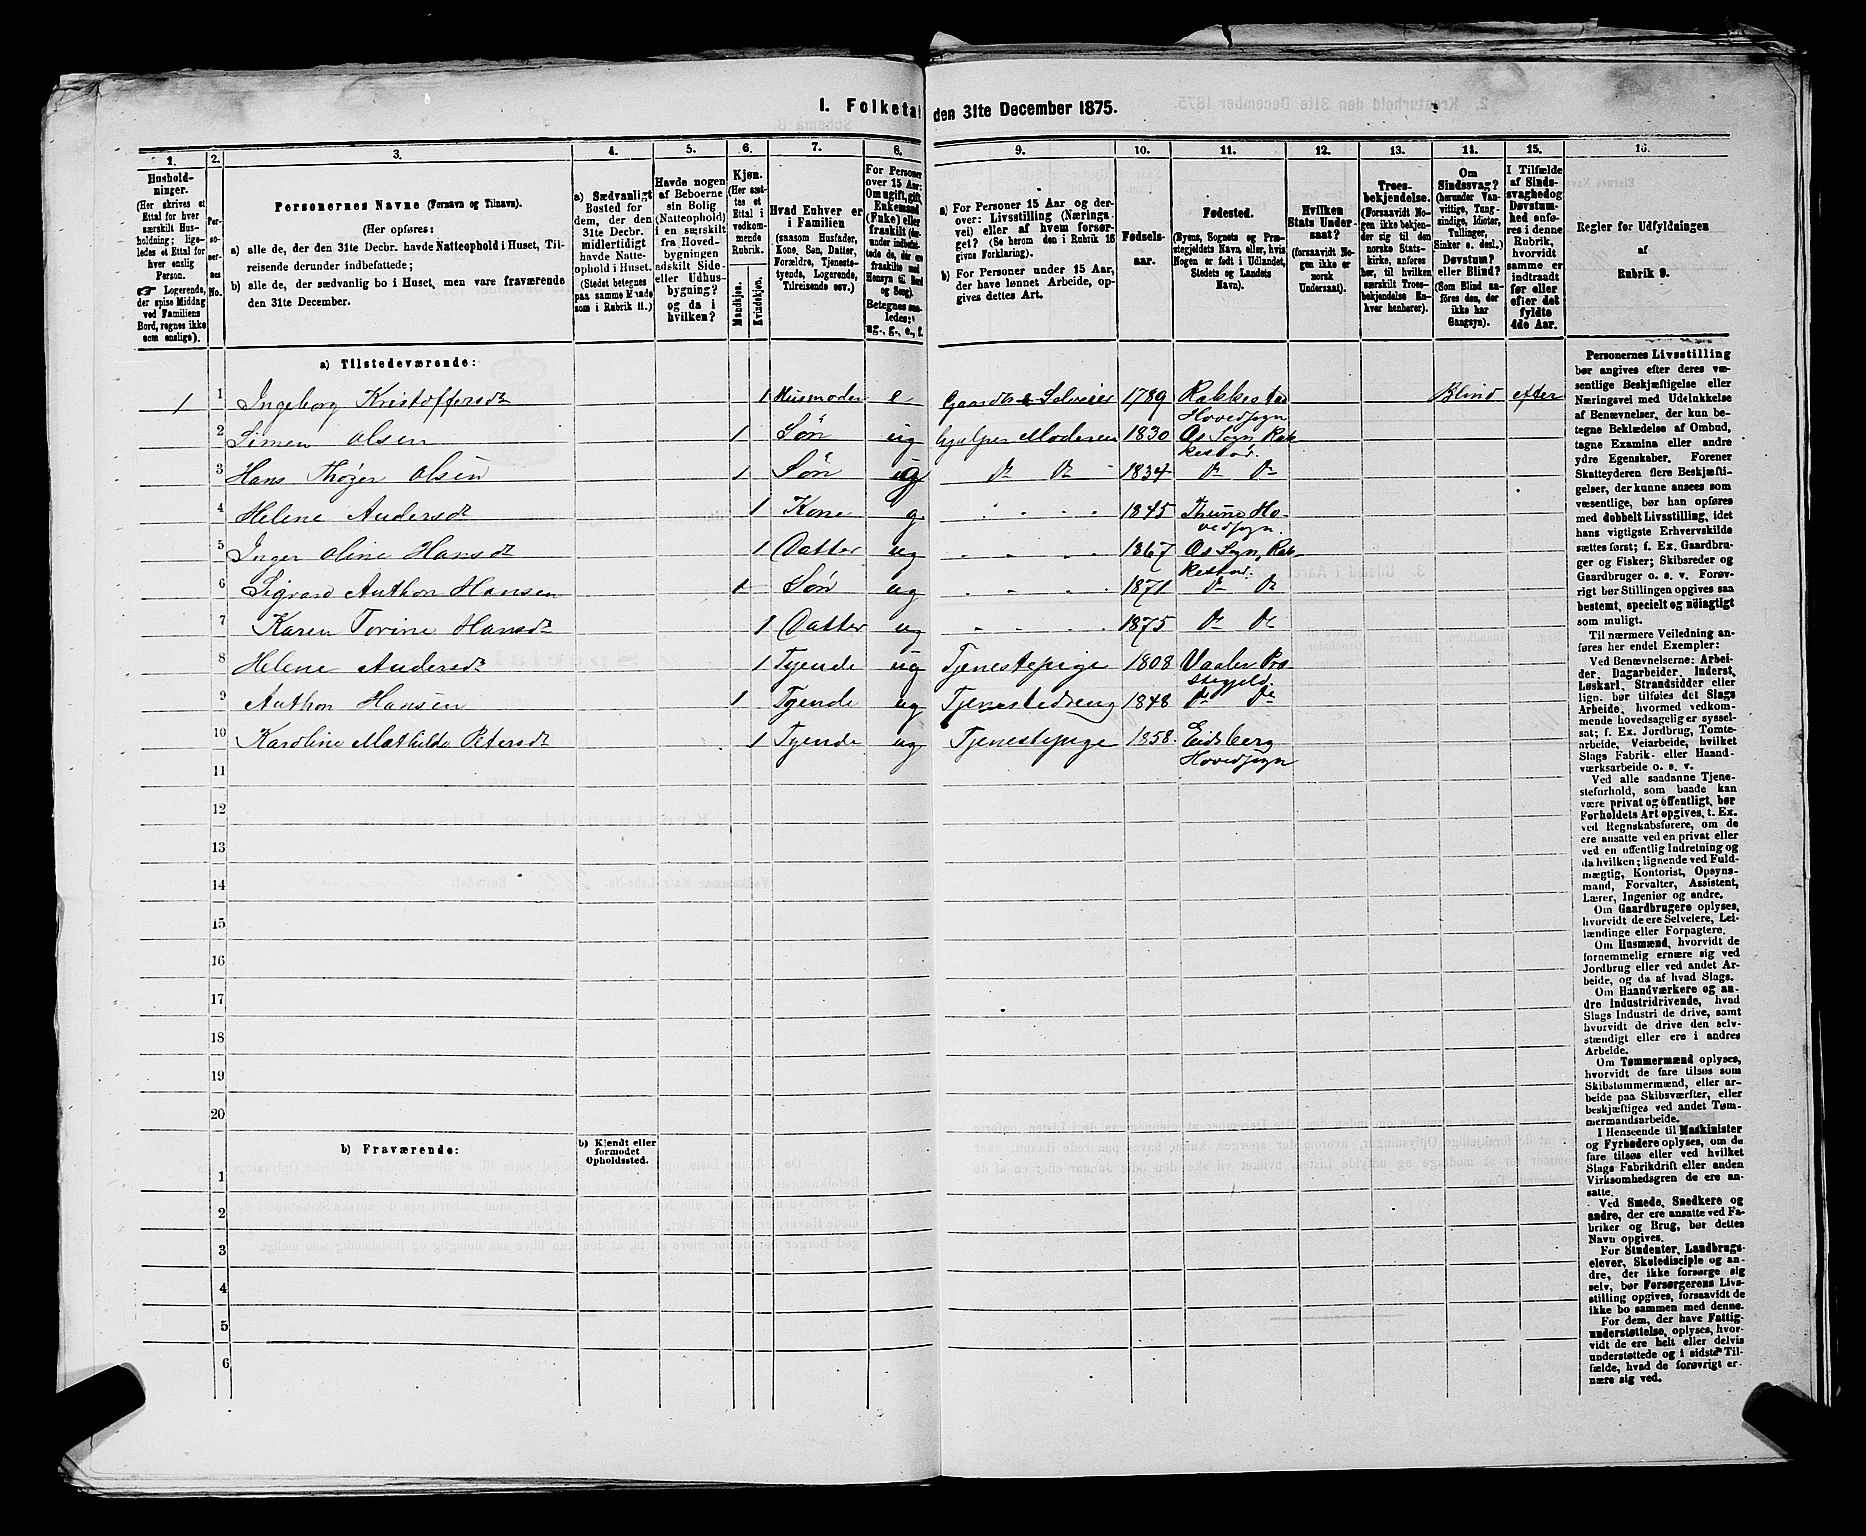 1. Folketal den 31te December 1875.
1. 2. 3. 4. 5. 6. 7. 8. 9. 10. 11. 12. 13. 14. 15. 16.
Hushold-
ninger.
(Her skrives et
Ettal for hver
særskilt Hus-
holdning; lige-
ledes et Ettal
for hver enslig
Person.
☞ Logerende,
der spise Middag
ved Familiens
Bord, regnes ikke
som enslige).
Per-
so-
ner-
nes
No.
Personernes Navne (Fornavn og Tilnavn).
(Her opføres:
a) alle de, der den 31te Decbr. havde Natteophold i Huset, Til-
reisende derunder indbefattede;
b) alle de, der sædvanlig bo i Huset, men vare fraværende
den 31te December.
a) Sædvanligt
Bosted for
dem, der den
31te Decbr.
midlertidigt
havde Natte-
ophold i Huset.
(Stedet betegnes
paa samme Maade
som i Rubrik 11.)
Havde nogen
af Beboerne
sin Bolig
(Natteophold)
i en særskilt
fra Hoved-
bygningen
adskilt Side-
eller Udhus-
bygning?
og da i
hvilken?
Kjøn.
(Her sæt-
tes et
Ettal i
vedkom-
mende
Rubrik.
Mandkjøn.
Kvindekjøn.
Hvad Enhver er
i Familien
(saasom Husfader,
Kone, Søn, Datter,
Forældre, Tjeneste-
tyende, Logerende,
Tilreisende osv.)
For Personer
over 15 Aar:
Om ugift, gift,
Enkemand
(Enke) eller
fraskilt (der-
under indbefat-
tede de, der ere
fraskilte med
Hensyn til Bord
og Seng).
Betegnes saa-
ledes:
ug., g., e., f.
a) For Personer 15 Aar og der-
over: Livsstilling (Nærings-
vei) eller af hvem forsør-
get? (Se herom den i Rubrik 16
givne Forklaring).
b) For Personer under 15 Aar,
der have lønnet Arbeide, op-
gives dettes Art.
Fødsels-
aar.
Fødested.
(Byens, Sognets og Præ-
stegjeldets Navn eller, hvis
Nogen er født i Udlandet,
Stedets og Landets
Navn).
Hvilken
Stats Under-
saat?
(forsaavidt No-
gen ikke er
norsk
Undersaat).
Troes-
bekjendelse.
(Forsaavidt No-
gen ikke bekjen-
der sig til den
norske Stats-
kirke, anføres
her, til hvilken
særskilt Troes-
bekjendelse En-
hver henhører).
Om
Sindssvag?
(herunder Van-
vittige, Tung-
sindige, Idioter,
Tullinger,
Sinker o. desl.)
Døvstum?
eller Blind?
(Som Blind an-
føres den, der
ikke har
Gangsyn).
I Tilfælde
af Sinds-
svaghed og
Døvstum-
hed anfø-
res i denne
Rubrik,
hvorvidt
samme er
indtraadt
før eller
efter det
fyldte
4de Aar.
Regler for Udfyldningen
af
Rubrik 9.
a) Tilstedeværende:
1 1 Ingeborg Kristoffersdt 1 Husmoder e Gaardbr & Selveier 1789 Rakkestad Hovedsogn Blind efter
2 Simen Olsen 1 Søn ug hjælper Moderen 1830 Os Sogn Rakkestad.
3 Hans Thøger Olsen 1 Søn ug Do Do 1834 Do Do
4 Helene Andersdt 1 Kone g " " " " 1845 Thrune Hovedsogn
5 Inger Oline Hansdt 1 Datter ug " " " " 1867 Os Sogn, Rakkestad.
6 Sigvard Anthon Hansen 1 Søn ug " " " " 1871 Do Do
7 Karen Tovine Hansdt 1 Datter ug " " " " 1875 Do Do
8 Helene Andersdt 1 Tyende ug Tjenestepige 1808 Vaaler Præstegjeld.
9 Anthon Hansen 1 Tyende ug Tjenestedreng 1848 Do Do
10 Karoline Mathilde Petersdt 1 Tyende ug Tjenestepige 1858 Eidsberg Hovedsogn
11
12
13
14
15
16
17
18
19
20
b) Fraværende:
b) Kjendt eller
formodet
Opholdssted.
1
2
3
4
5
6
Personernes Livsstilling
bør angives efter deres væ-
sentlige Beskjæftigelse eller
Næringsvei med Udelukkelse
af Benævnelser, der kun be-
tegne Beklædelse af Ombud,
tagne Examina eller andre
ydre Egenskaber. Forener
Skatteyderen flere Beskjæfti-
gelser, der kunne ansees som
væsentlige, bør han opføres
med dobbelt Livsstilling, idet
hans vigtigste Erhvervskilde
sættes først; f. Ex. Gaardbru-
ger og Fisker; Skibsreder og
Gaardbruger o. s. v. Forøv-
rigt bør Stillingen opgives saa
bestemt, specielt og nøiagtigt
som muligt.
Til nærmere Veiledning an-
føres her endel Exempler:
Ved Benævnelserne: Arbei-
der, Dagarbeider, Inderst,
Løskarl, Strandsidder eller
lign. bør tilføies det Slags
Arbeide, hvormed vedkom-
mende hovedsagelig er syssel-
sat; f. Ex. Jordbrug, Tomte-
arbeide, Veiarbeide, hvilket
Slags Fabrik- eller Haand-
værksarbeide o. s. v.
Ved alle saadanne Tjene-
steforhold, som baade kan
være privat og offentligt, bør
Forholdets Art opgives, t. Ex.
ved Regnskabsførere, om de
ere ansatte ved en privat eller
ved en offentlig Indretning og
da hvilken; lignende ved Fuld-
mægtig, Kontorist, Opsyns-
mand, Forvalter, Assistent,
Lærer, Ingeniør og andre.
Om Gaardbrugere oplyses,
hvorvidt de ere Selveiere, Lei-
lændinge eller Forpagtere.
Om Husmænd, hvorvidt de
fornemmelig ernære sig ved
Jordbrug eller ved andet Ar-
beide, og da af hvad Slags.
Om Haandværkere og an-
dre Industridrivende, hvad
Slags Industri de drive, samt
hvorvidt de drive den selv-
stændigt eller ere i andres
Arbeide.
Om Tømmermænd oplyses,
hvorvidt de fare tilsøs som
Skibstømmermænd, eller ar-
beide paa Skibsværfter, eller
beskjæftiges ved andet Tøm-
mermandsarbeide.
I Henseende til Maskinister
og Fyrbødere oplyses, om de
fare tilsøs eller ved hvilket
Slags Fabrikdrift eller anden
Virksomhedsgren de ere an-
satte.
Ved Smede, Snedkere og
andre, der ere ansatte ved Fa-
briker og Brug, bør dettes
Navn opgives.
For Studenter, Landbrugs-
elever, Skoledisciple og an-
dre, der ikke forsørge sig
selv, bør Forsørgerens Livs-
stilling opgives, forsaavidt de
ikke bo sammen med denne.
For dem, der have Fattig-
understøttelse, oplyses, hvor-
vidt de ere helt eller delvis
understøttede og i sidste Til-
fælde, hvad de forøvrigt er-
nære sig ved.